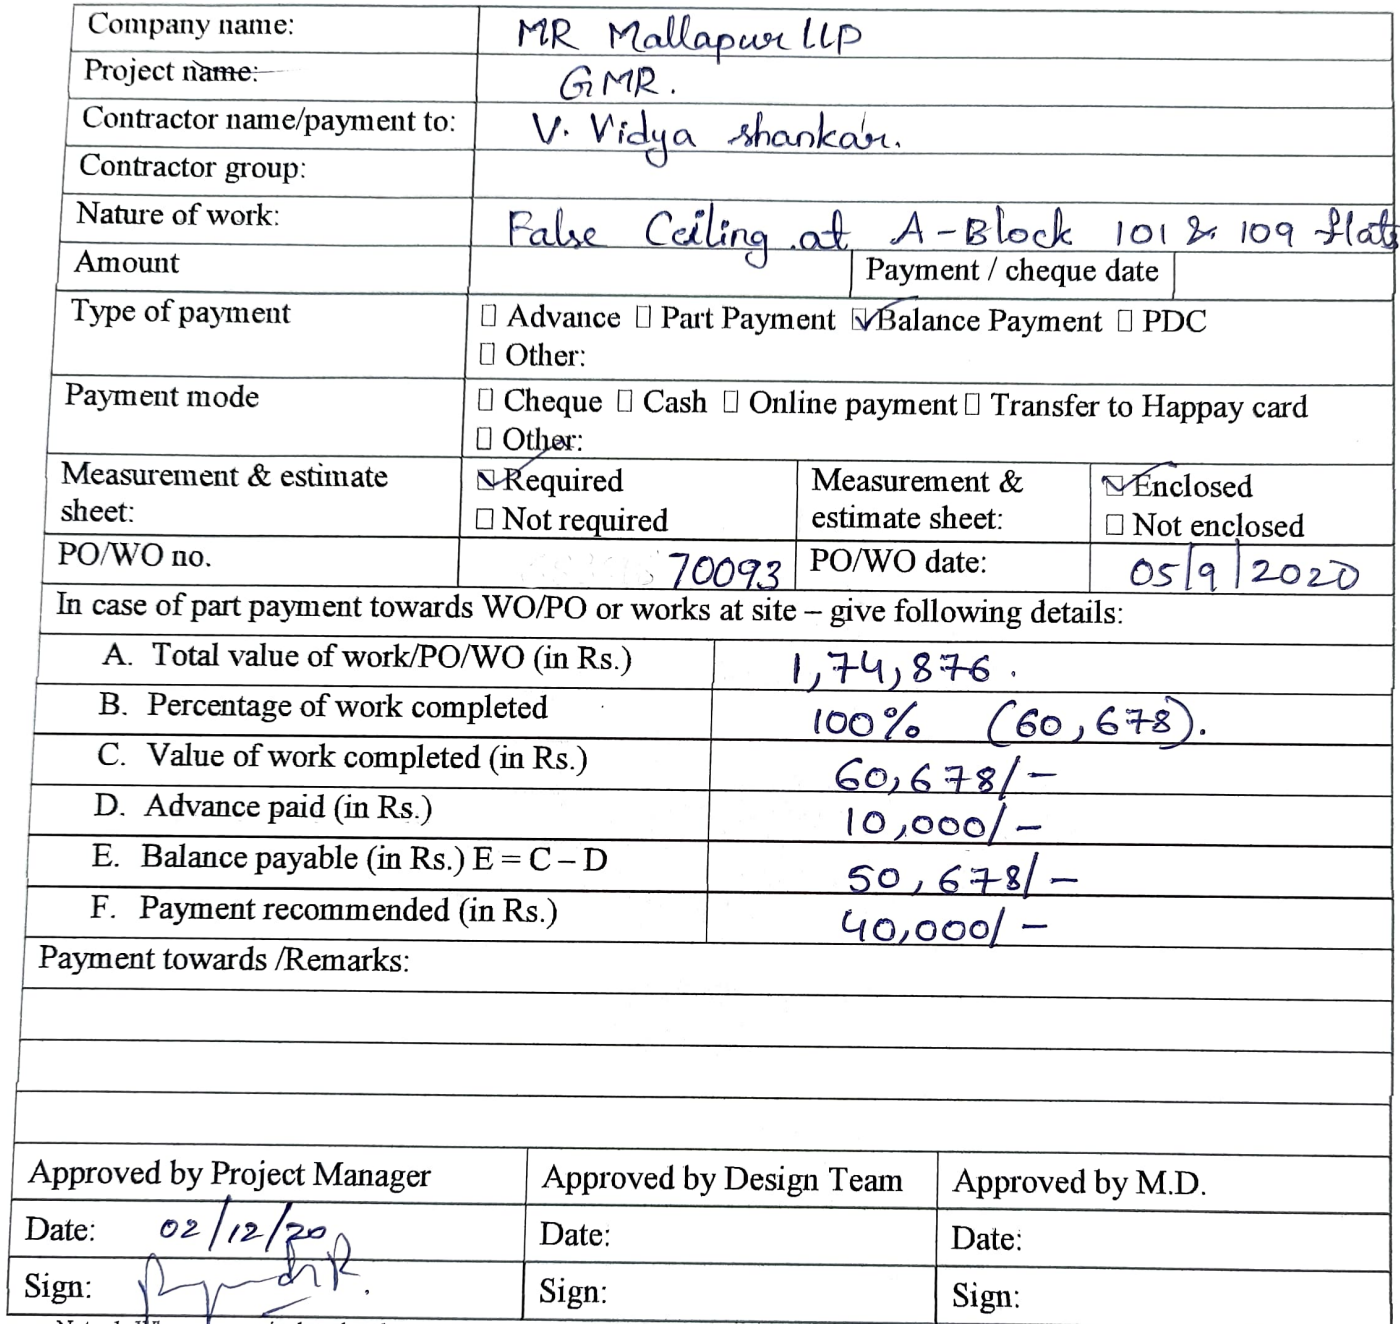 Company name: MR Mallapur LLP
Project name: GMR.
Contractor name/payment to: V. Vidya shankar.
Contractor group:
Nature of work: False Ceiling at A-Block 101 & 109 flats
Amount Payment / cheque date
Type of payment ☐ Advance ☐ Part Payment ☑ Balance Payment ☐ PDC
☐ Other:
Payment mode ☐ Cheque ☐ Cash ☐ Online payment ☐ Transfer to Happay card
☐ Other:
Measurement & estimate sheet: ☑ Required Measurement & estimate sheet: ☑ Enclosed
☐ Not required ☐ Not enclosed
PO/WO no. 70093 PO/WO date: 05/9/2020
In case of part payment towards WO/PO or works at site – give following details:
A. Total value of work/PO/WO (in Rs.) 1,74,876.
B. Percentage of work completed 100% (60,678).
C. Value of work completed (in Rs.) 60,678/-
D. Advance paid (in Rs.) 10,000/-
E. Balance payable (in Rs.) E = C – D 50,678/-
F. Payment recommended (in Rs.) 40,000/-
Payment towards /Remarks:
Approved by Project Manager Approved by Design Team Approved by M.D.
Date: 02/12/20 Date: Date:
Sign: Sign: Sign: